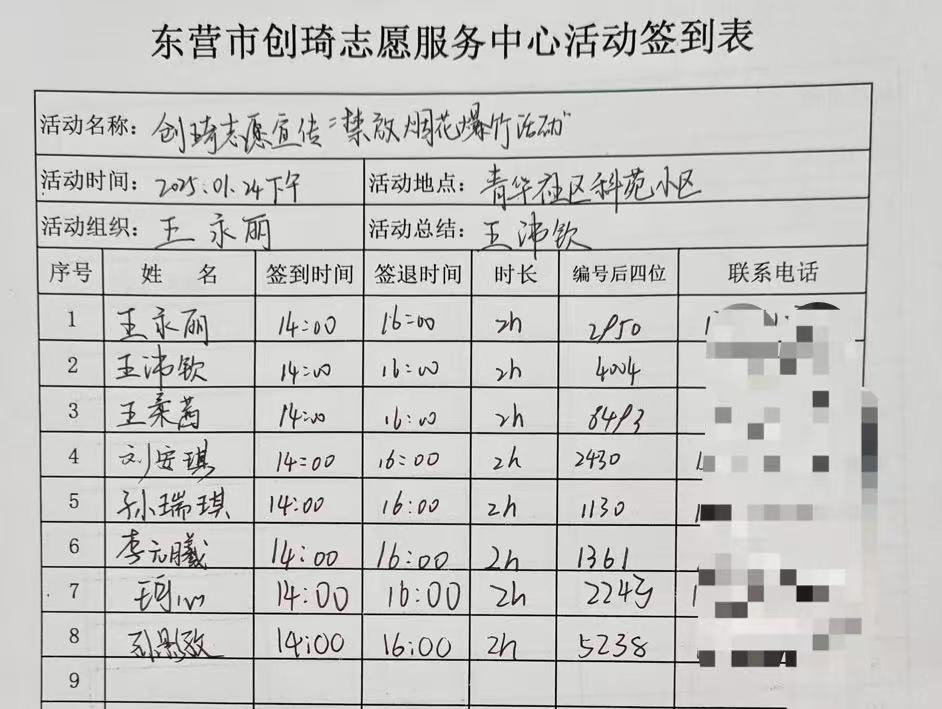 东营市创琦志愿服务中心活动签到表
活动名称: 创琦志愿宣传"禁放烟花爆竹活动"
活动时间: 2025.01.24下午 活动地点: 青华社区科苑小区
活动组织: 王永丽 活动总结: 王沛钦
序号 姓 名 签到时间 签退时间 时长 编号后四位 联系电话
1 王永丽 14:00 16:00 2h 2950
2 王沛钦 14:00 16:00 2h 4004
3 王柔茜 14:00 16:00 2h 8493
4 刘安琪 14:00 16:00 2h 2430
5 孙瑞琪 14:00 16:00 2h 1130
6 李元曦 14:00 16:00 2h 1361
7 14:00 16:00 2h 224
8 14:00 16:00 2h 5238
9